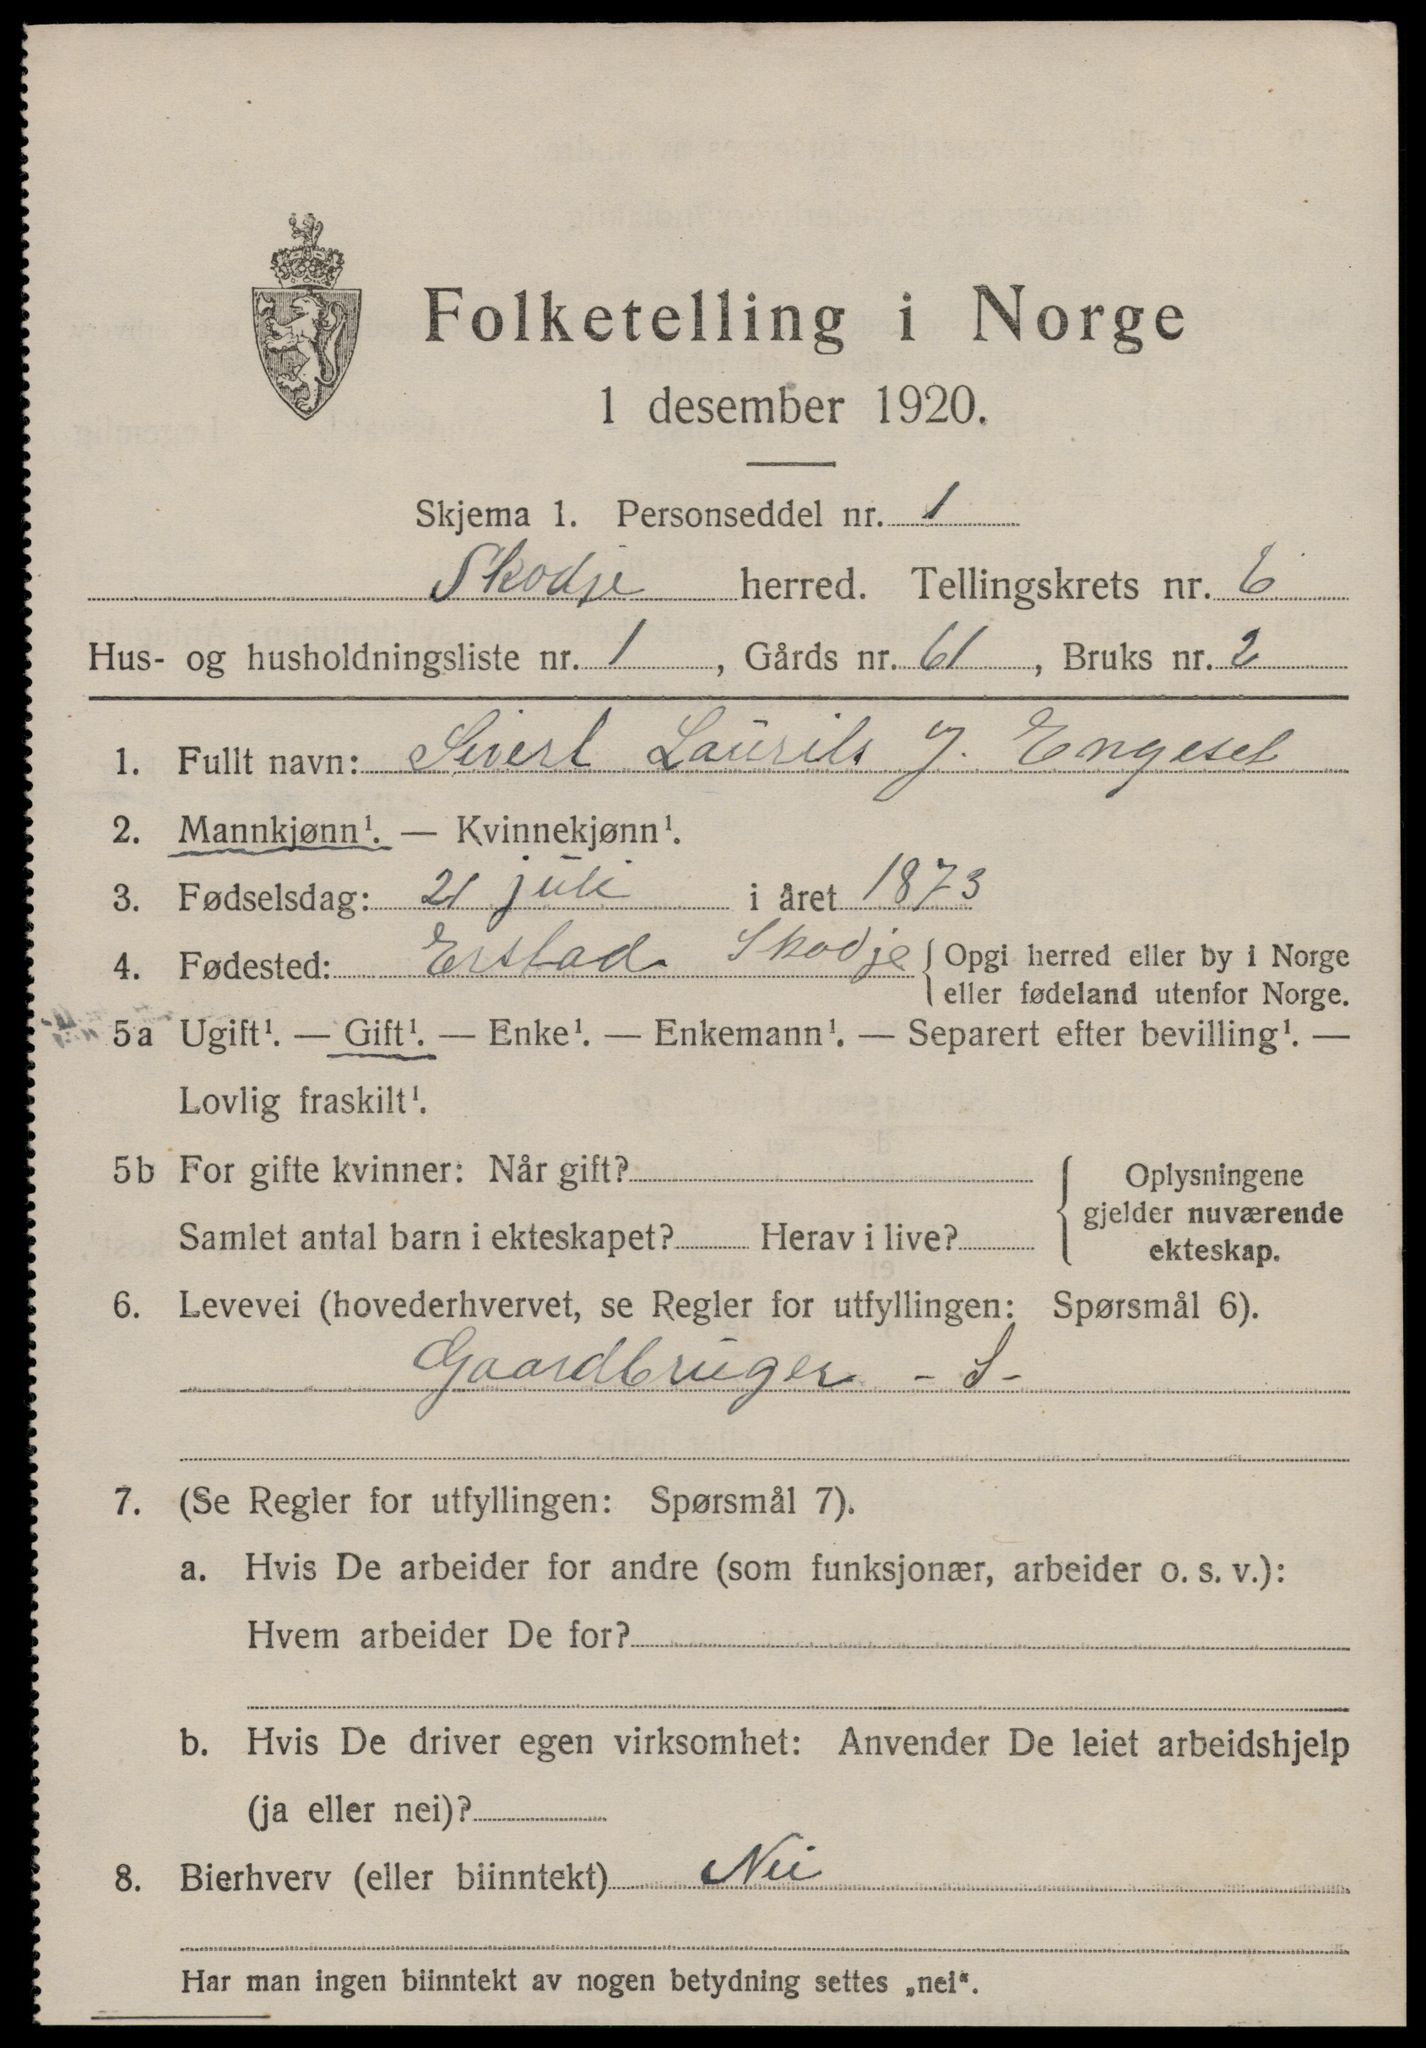 Folketelling i Norge
1 desember 1920.
Skjema 1. Personseddel nr. 1
Skodje herred. Tellingskrets nr. 6
Hus- og husholdningsliste nr. 1, Gårds nr. 61, Bruks nr. 2
1. Fullt navn: Sivert Laurits J. Engeset
2. Mannkjønn¹. — Kvinnekjønn¹.
3. Fødselsdag: 21 juli i året 1873
4. Fødested: Erstad Skodje { Opgi herred eller by i Norge
eller fødeland utenfor Norge.
5a Ugift¹. — Gift¹. — Enke¹. — Enkemann¹. — Separert efter bevilling¹. —
Lovlig fraskilt¹.
5b For gifte kvinner: Når gift?
Samlet antal barn i ekteskapet? Herav i live?
{ Oplysningene
gjelder nuværende
ekteskap.
6. Levevei (hovederhvervet, se Regler for utfyllingen: Spørsmål 6).
Gaardbruger - S -
7. (Se Regler for utfyllingen: Spørsmål 7).
a. Hvis De arbeider for andre (som funksjonær, arbeider o. s. v.):
Hvem arbeider De for?
b. Hvis De driver egen virksomhet: Anvender De leiet arbeidshjelp
(ja eller nei)?
8. Bierhverv (eller biinntekt) Nei
Har man ingen biinntekt av nogen betydning settes „nei“.